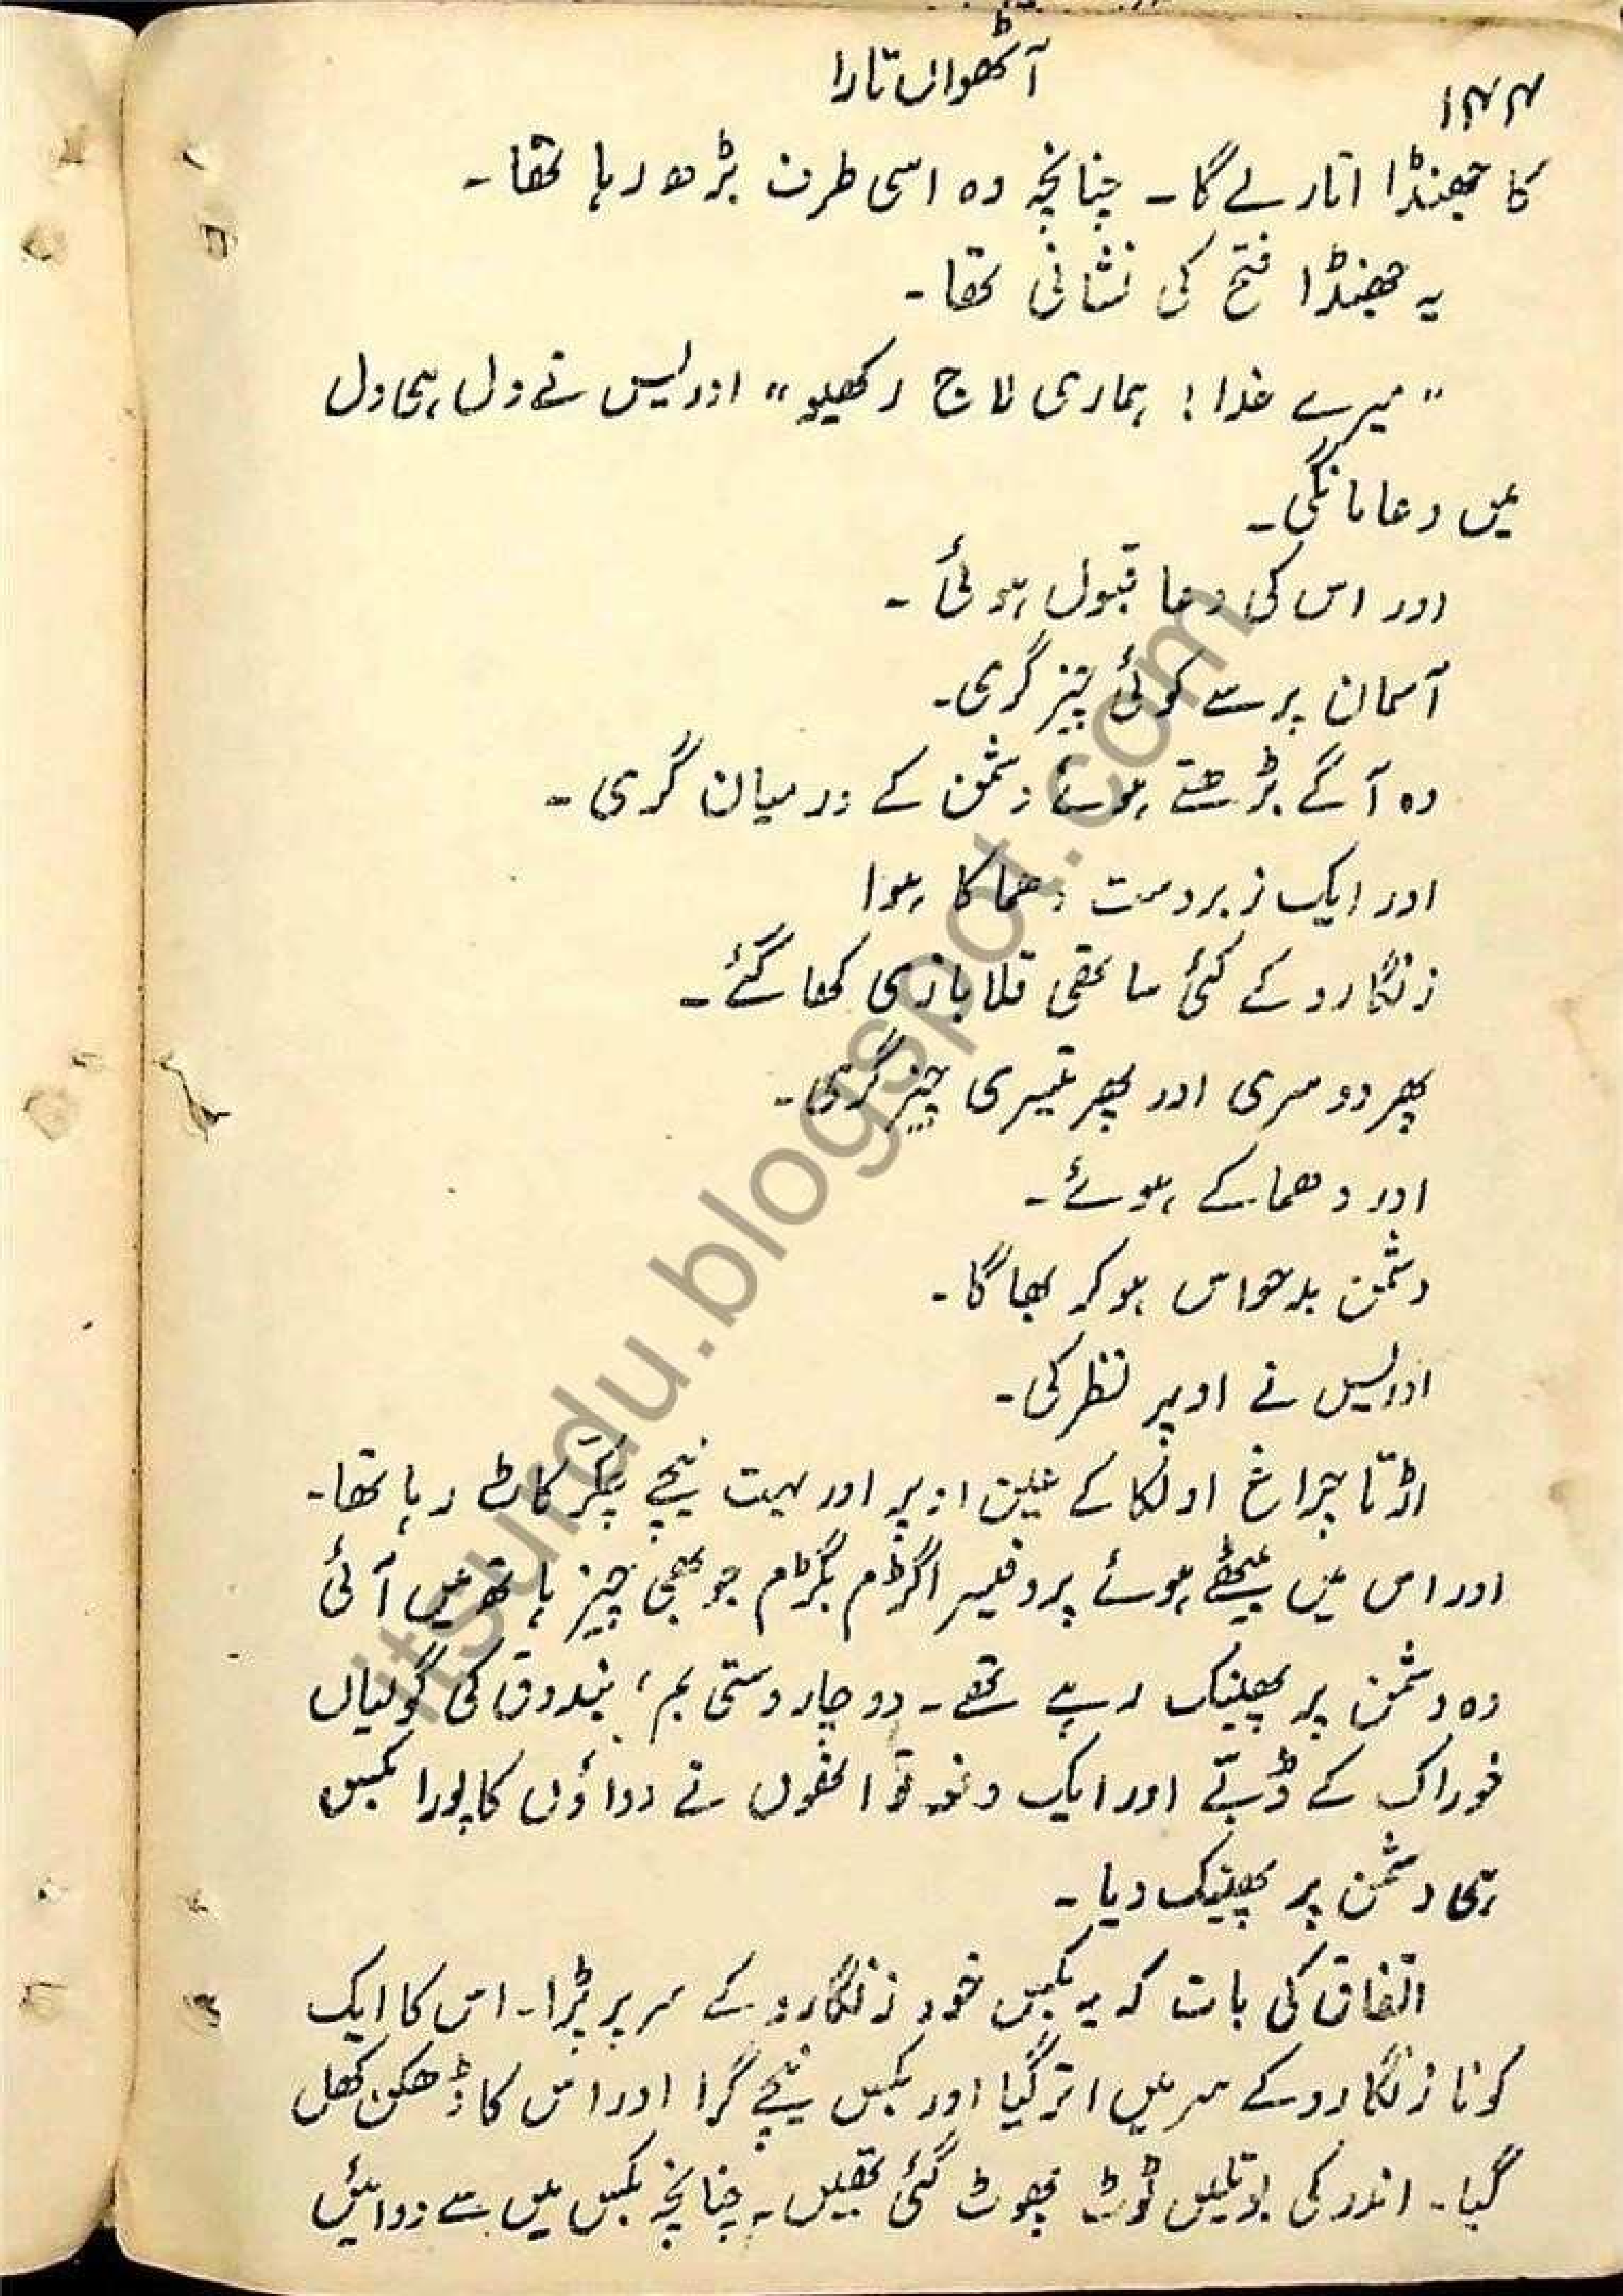 آٹھواں تارا
۱۴۴
کا جھنڈا اتار لے گا۔ چنانچہ وہ اسی طرف بڑھ رہا تھا۔
یہ جھنڈا فتح کی نشانی تھا۔
"میرے خدا! ہماری لاج رکھیو" ادریس نے دل ہی دل
میں دعا مانگی۔
اور اس کی دعا قبول ہوئی۔
آسمان پر سے کوئی چیز گری۔
وہ آگے بڑھتے ہوئے دشمن کے درمیان گری۔
اور ایک زبردست دھماکا ہوا
زنگارو کے کئی ساتھی قلابازی کھا گئے۔
پھر دوسری اور پھر تیسری چیز گری۔
اور دھماکے ہوئے۔
دشمن بدحواس ہو کر بھاگا۔
ادریس نے اوپر نظر کی۔
اڑتا چراغ اولکا کے عین اوپر اور بہت نیچے چکّر کاٹ رہا تھا۔
اور اس میں بیٹھے ہوئے پروفیسر اگڑم بگڑم جو بھی چیز ہاتھ میں آئی
وہ دشمن پر پھینک رہے تھے۔ دو چار دستی بم، بندوق کی گولیاں
خوراک کے ڈبّے اور ایک دفعہ تو انھوں نے دواؤں کا پورا بکس
ہی دشمن پر پھینک دیا۔
اتفاق کی بات کہ یہ بکس خود زنگارو کے سر پر پڑا۔ اس کا ایک
کونا زنگارو کے سر میں اتر گیا اور بکس نیچے گرا اور اس کا ڈھکن کھل
گیا۔ اندر کی بوتلیں ٹوٹ پھوٹ گئی تھیں۔ چنانچہ بکس میں سے دوائیں
itsurdu.blogspot.com